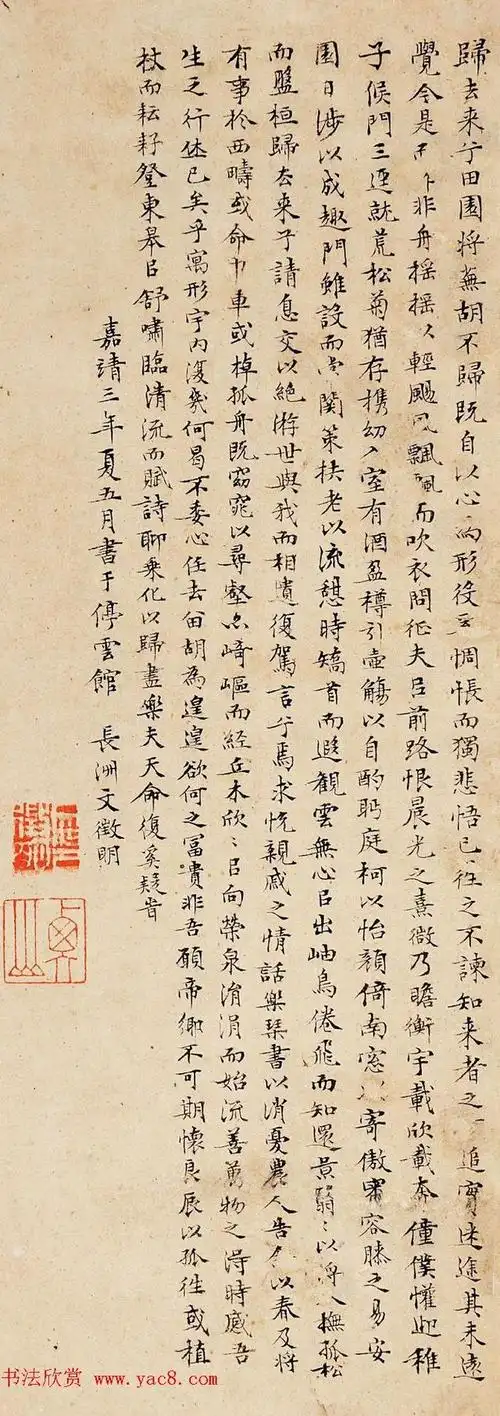 歸去来兮田園将蕪胡不歸既自以心為形役奚惆悵而獨悲悟已往之不諫知来者之可追實迷途其未遠
覺今是而昨非舟摇摇以輕颺風飄飄而吹衣問征夫㠯前路恨晨光之熹微乃瞻衡宇載欣載奔僮僕懽迎稚
子候門三逕就荒松菊猶存携幼入室有酒盈樽引壺觴以自酌眄庭柯以怡顔倚南窓以寄傲審容膝之易安
園日涉以成趣門雖設而常関策扶老以流憩時矯首而遐觀雲無心㠯出岫鳥倦飛而知還景翳〻以将入撫孤松
而盤桓歸去来兮請息交以絶游世與我而相遺復駕言兮焉求悦親戚之情話樂琴書以消憂農人告余以春及将
有事於西疇或命巾車或棹孤舟既窈窕以尋壑亦崎嶇而經丘木欣〻㠯向榮泉涓涓而始流善萬物之得時感吾
生之行休已矣乎寓形宇内復幾何曷不委心任去留胡為遑遑欲何之冨貴非吾願帝鄉不可期懷良辰以孤往或植
杖而耘耔登東皋㠯舒嘯臨清流而賦詩聊乗化以歸盡樂夫天命復奚疑
嘉靖三年夏五月書于停雲館 長洲文徵明
书法欣赏 www.yac8.com